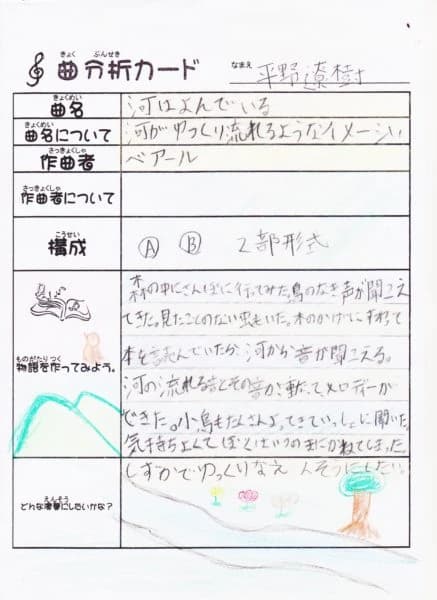 きょく ぶんせき
曲分析カード
なまえ
平野遼樹
きょくめい
曲名
河はよんでいる
きょくめい
曲名について
河がゆっくり流れるようなイメージ
さっきょくしゃ
作曲者
ベアール
さっきょくしゃ
作曲者について
こうせい
構成
Ⓐ Ⓑ 2部形式
ものがたり つく
物語を作ってみよう。
森の中にさんぽに行ってみた。鳥のなき声が聞こえ
てきた。見たことのない虫もいた。木のかげにすわって
本を読んでいたら、河から音が聞こえる。
河の流れる音とその音が重たってメロディーが
できた。小鳥もたくさんよってきていっしょに聞いた。
気持ちよくてぼくはいつのまにかねてしまった。
えんそう
どんな演奏にしたいかな?
しずかでゆっくりなえんそうにしたい。